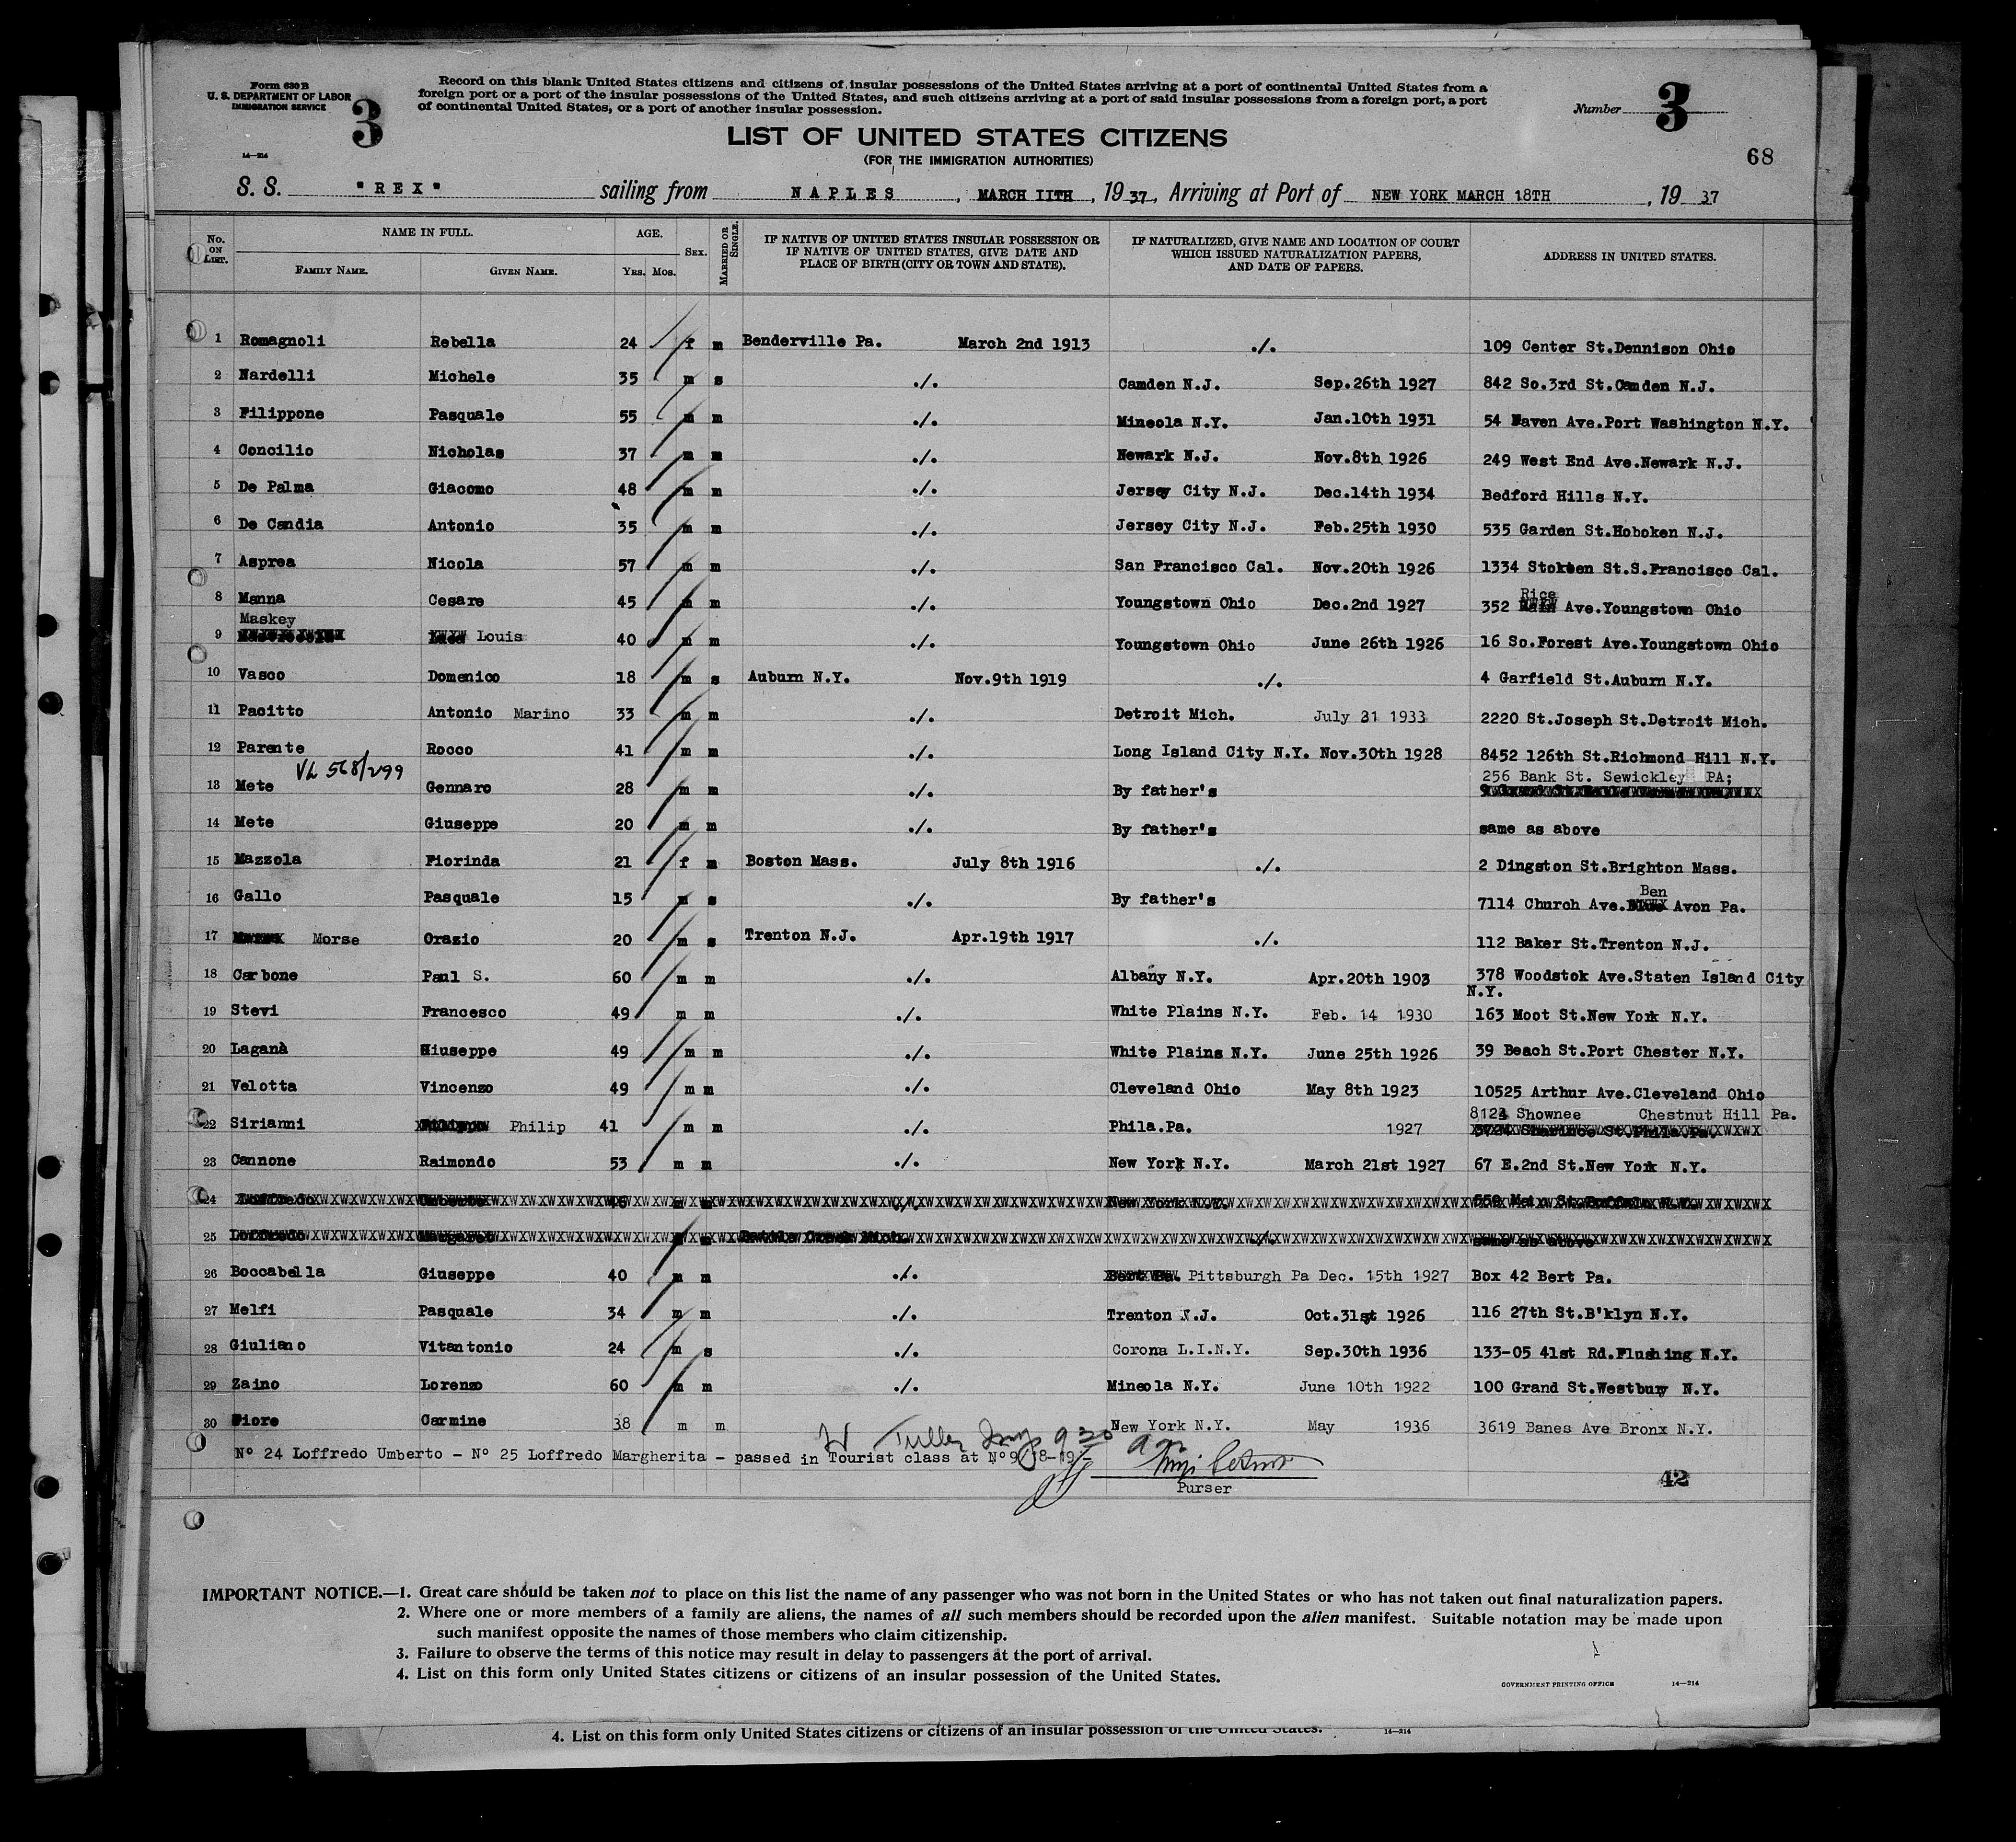 Form 630 B
U. S. DEPARTMENT OF LABOR
IMMIGRATION SERVICE
3
14—214
Record on this blank United States citizens and citizens of insular possessions of the United States arriving at a port of continental United States from a
foreign port or a port of the insular possessions of the United States, and such citizens arriving at a port of said insular possessions from a foreign port, a port
of continental United States, or a port of another insular possession.
Number 3
LIST OF UNITED STATES CITIZENS
(FOR THE IMMIGRATION AUTHORITIES)
68
S. S. "REX" sailing from NAPLES, MARCH IITH, 19 37, Arriving at Port of NEW YORK MARCH 18TH, 19 37
No. ON LIST. NAME IN FULL. FAMILY NAME. GIVEN NAME. AGE. YRS. MOS. SEX. MARRIED OR SINGLE.
IF NATIVE OF UNITED STATES INSULAR POSSESSION OR IF NATIVE OF UNITED STATES, GIVE DATE AND PLACE OF BIRTH (CITY OR TOWN AND STATE).
IF NATURALIZED, GIVE NAME AND LOCATION OF COURT WHICH ISSUED NATURALIZATION PAPERS, AND DATE OF PAPERS.
ADDRESS IN UNITED STATES.
1 Romagnoli Rebella 24 f m Benderville Pa. March 2nd 1913 ./. 109 Center St.Dennison Ohio
2 Nardelli Michele 35 m s ./. Camden N.J. Sep.26th 1927 842 So.3rd St.Camden N.J.
3 Filippone Pasquale 55 m m ./. Mineola N.Y. Jan.10th 1931 54 Haven Ave.Port Washington N.Y.
4 Concilio Nicholas 37 m m ./. Newark N.J. Nov.8th 1926 249 West End Ave.Newark N.J.
5 De Palma Giacomo 48 m m ./. Jersey City N.J. Dec.14th 1934 Bedford Hills N.Y.
6 De Candia Antonio 35 m m ./. Jersey City N.J. Feb.25th 1930 535 Garden St.Hoboken N.J.
7 Asprea Nicola 57 m m ./. San Francisco Cal. Nov.20th 1926 1334 Stokten St.S.Francisco Cal.
8 Manna Cesare 45 m m ./. Youngstown Ohio Dec.2nd 1927 352 Rice Ave.Youngstown Ohio
9 Maskey Louis 40 m m ./. Youngstown Ohio June 26th 1926 16 So.Forest Ave.Youngstown Ohio
10 Vasco Domenico 18 m s Auburn N.Y. Nov.9th 1919 ./. 4 Garfield St.Auburn N.Y.
11 Pacitto Antonio Marino 33 m m ./. Detroit Mich. July 31 1933 2220 St.Joseph St.Detroit Mich.
12 Parente Rocco 41 m m ./. Long Island City N.Y. Nov.30th 1928 8452 126th St.Richmond Hill N.Y.
VL 568/299
256 Bank St. Sewickley PA;
13 Mete Gennaro 28 m m ./. By father's
14 Mete Giuseppe 20 m m ./. By father's same as above
15 Mazzola Fiorinda 21 f m Boston Mass. July 8th 1916 ./. 2 Dingston St.Brighton Mass.
16 Gallo Pasquale 15 m s ./. By father's 7114 Church Ave. Ben Avon Pa.
17 Morse Orazio 20 m s Trenton N.J. Apr.19th 1917 ./. 112 Baker St.Trenton N.J.
18 Carbone Paul S. 60 m m ./. Albany N.Y. Apr.20th 1903 378 Woodstok Ave.Staten Island City
N.Y.
19 Stevi Francesco 49 m m ./. White Plains N.Y. Feb. 14 1930 163 Moot St.New York N.Y.
20 Laganà Giuseppe 49 m m ./. White Plains N.Y. June 25th 1926 39 Beach St.Port Chester N.Y.
21 Velotta Vincenzo 49 m m ./. Cleveland Ohio May 8th 1923 10525 Arthur Ave.Cleveland Ohio
8124 Shownee Chestnut Hill Pa.
22 Sirianni Philip 41 m m ./. Phila.Pa. 1927
23 Cannone Raimondo 53 m m ./. New York N.Y. March 21st 1927 67 E.2nd St.New York N.Y.
24 Loffredo Umberto 46 m m ./. New York N.Y. 550 Main St.Buffalo N.Y.
25 Loffredo Margaret Battle Creek Mich. ./. same as above
26 Boccabella Giuseppe 40 m m ./. Bert Pa. Pittsburgh Pa Dec. 15th 1927 Box 42 Bert Pa.
27 Melfi Pasquale 34 m m ./. Trenton N.J. Oct.31st 1926 116 27th St.B'klyn N.Y.
28 Giuliano Vitantonio 24 m s ./. Corona L.I.N.Y. Sep.30th 1936 133-05 41st Rd.Flushing N.Y.
29 Zaino Lorenzo 60 m m ./. Mineola N.Y. June 10th 1922 100 Grand St.Westbury N.Y.
30 Fiore Carmine 38 m m New York N.Y. May 1936 3619 Banes Ave Bronx N.Y.
Nº 24 Loffredo Umberto - Nº 25 Loffredo Margherita - passed in Tourist class at Nº9/18-19-
Purser
42
IMPORTANT NOTICE.—1. Great care should be taken not to place on this list the name of any passenger who was not born in the United States or who has not taken out final naturalization papers.
2. Where one or more members of a family are aliens, the names of all such members should be recorded upon the alien manifest. Suitable notation may be made upon
such manifest opposite the names of those members who claim citizenship.
3. Failure to observe the terms of this notice may result in delay to passengers at the port of arrival.
4. List on this form only United States citizens or citizens of an insular possession of the United States.
GOVERNMENT PRINTING OFFICE 14—214
4. List on this form only United States citizens or citizens of an insular possession of the United States. 14—214